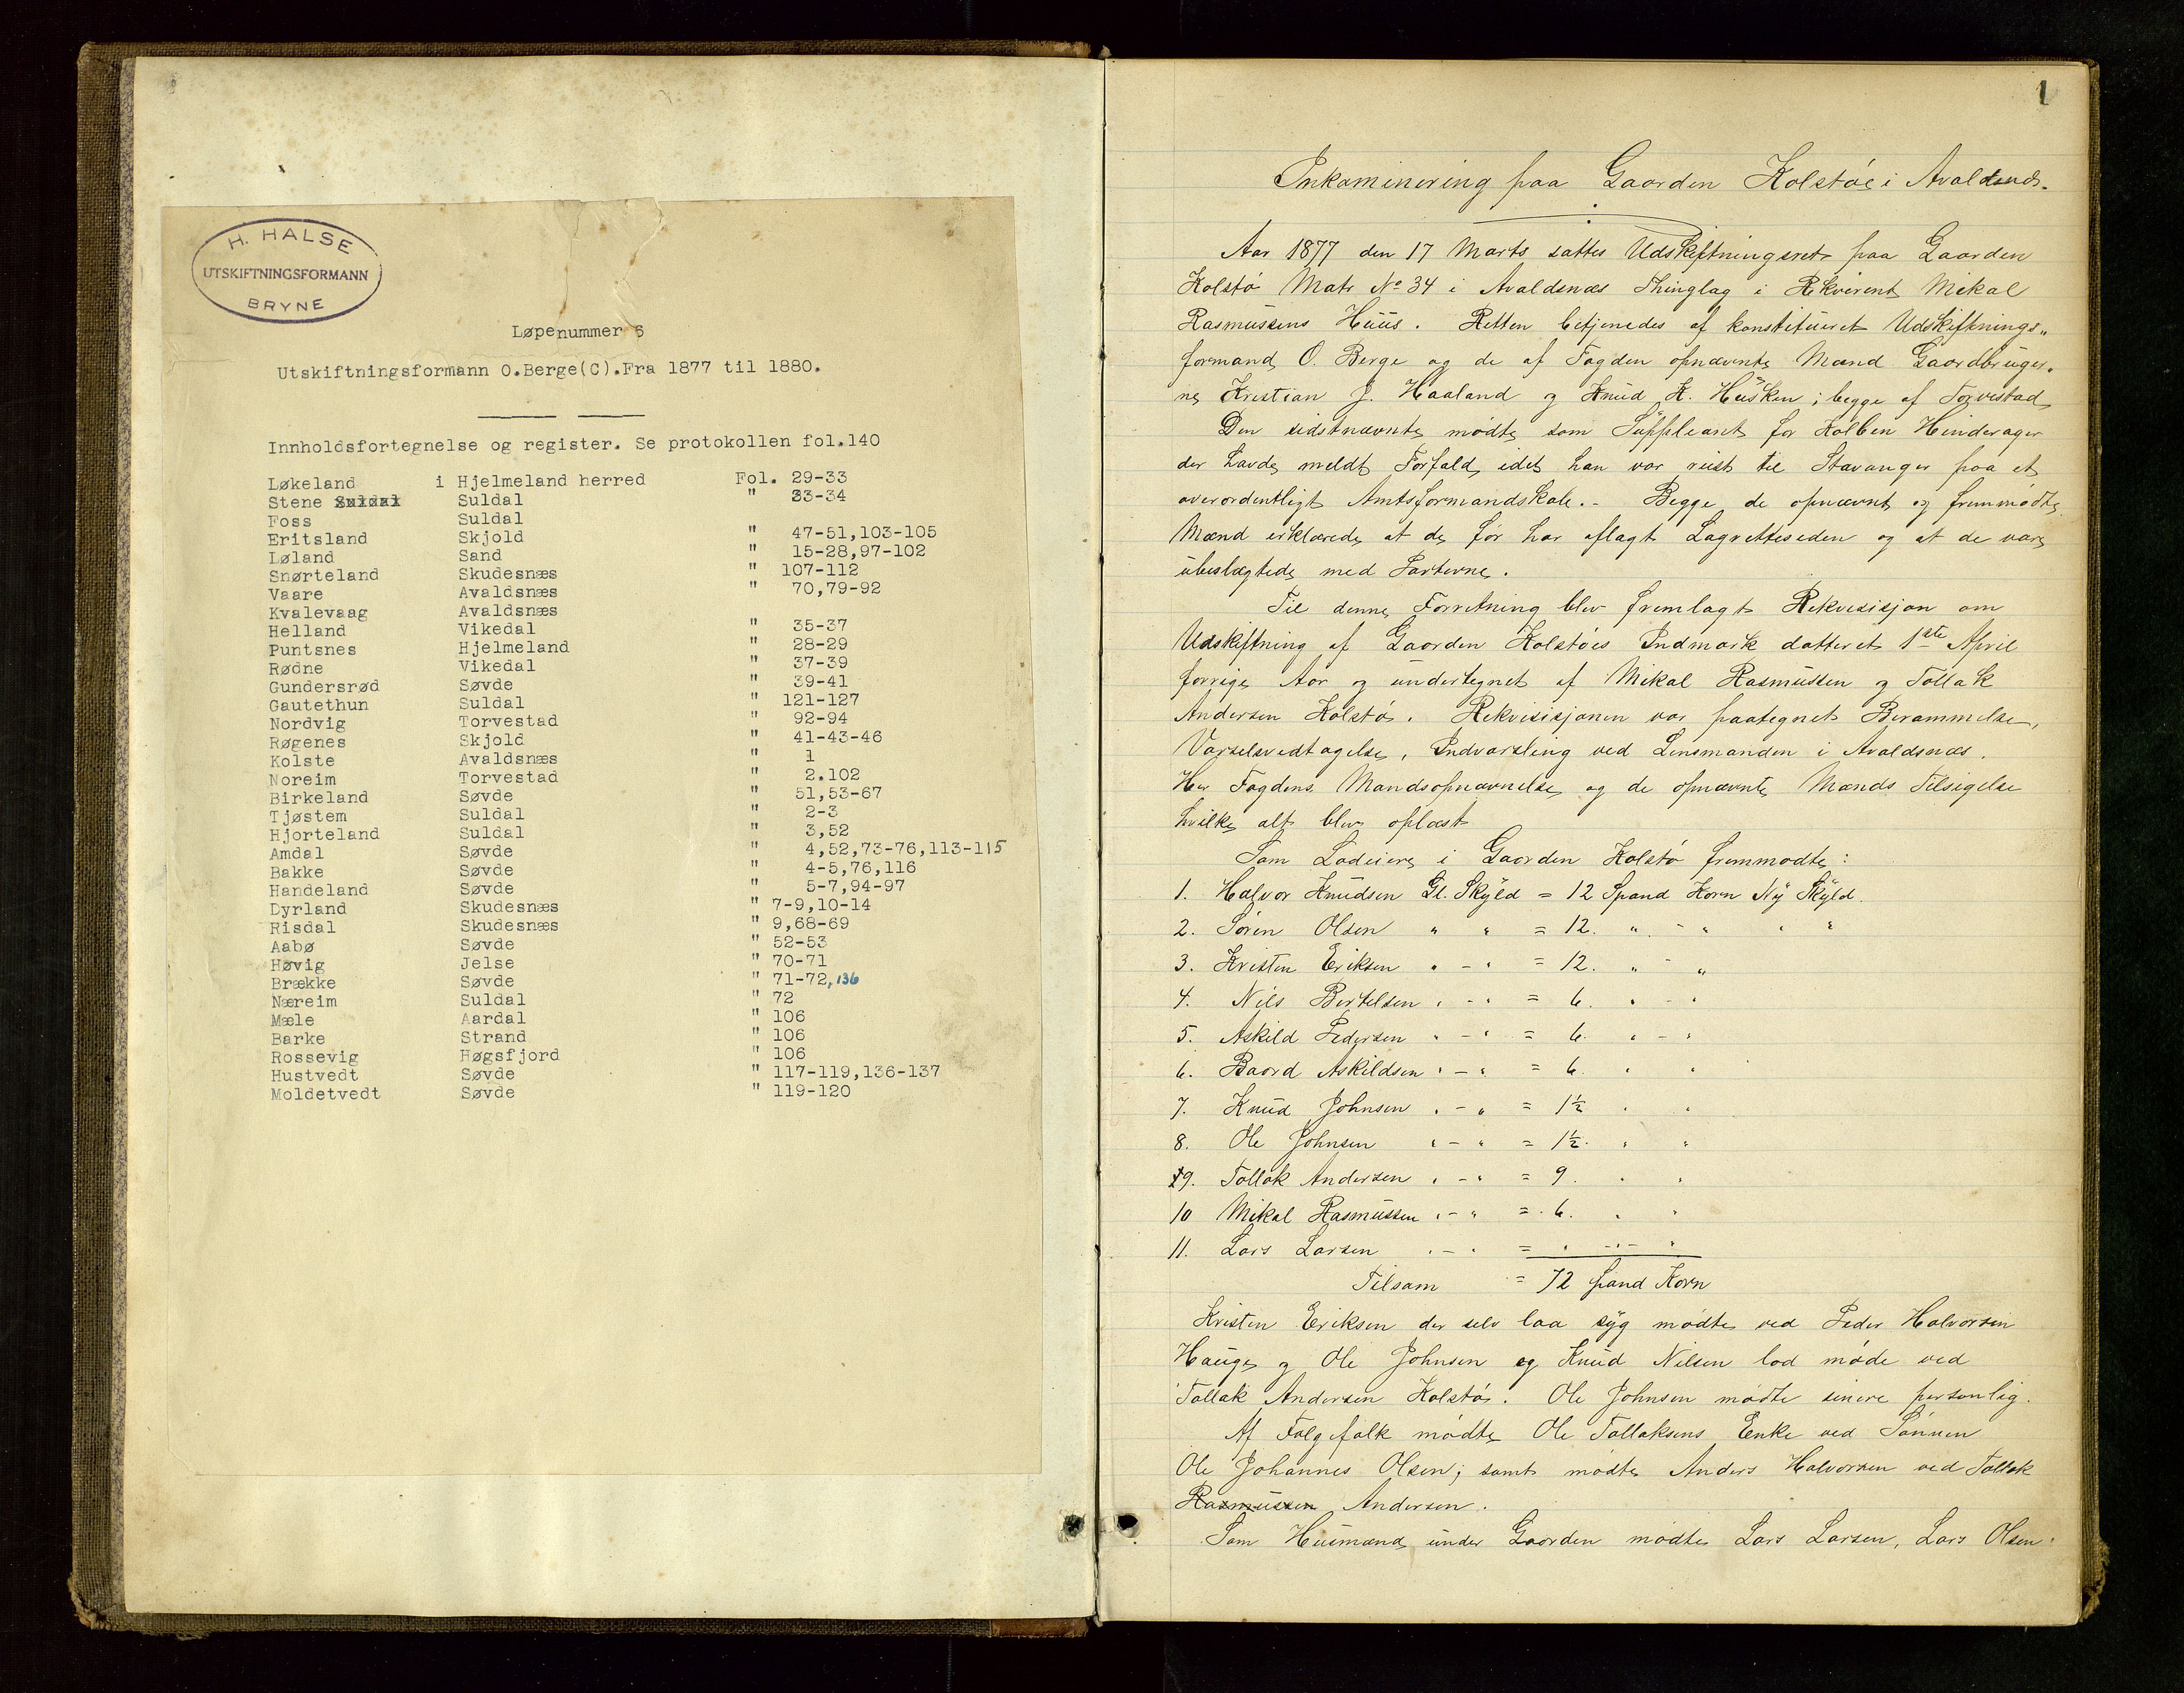 H. HALSE
UTSKIFTNINGSFORMANN
BRYNE
Løpenummer 6
Utskiftningsformann O.Berge(C).Fra 1877 til 1880.
Innholdsfortegnelse og register. Se protokollen fol.140
Løkeland i Hjelmeland herred Fol. 29-33
Stene Suldal Suldal " 33-34
Foss Suldal
Eritsland Skjold " 47-51,103-105
Løland Sand " 15-28,97-102
Snørteland Skudesnæs " 107-112
Vaare Avaldsnæs " 70,79-92
Kvalevaag Avaldsnæs
Helland Vikedal " 35-37
Puntsnes Hjelmeland " 28-29
Rødne Vikedal " 37-39
Gundersrød Søvde " 39-41
Gautethun Suldal " 121-127
Nordvig Torvestad " 92-94
Røgenes Skjold " 41-43-46
Kolste Avaldsnæs " 1
Noreim Torvestad " 2.102
Birkeland Søvde " 51,53-67
Tjøstem Suldal " 2-3
Hjorteland Suldal " 3,52
Amdal Søvde " 4,52,73-76,113-115
Bakke Søvde " 4-5,76,116
Handeland Søvde " 5-7,94-97
Dyrland Skudesnæs " 7-9,10-14
Risdal Skudesnæs " 9,68-69
Aabø Søvde " 52-53
Høvig Jelse " 70-71
Brække Søvde " 71-72,136
Næreim Suldal " 72
Mæle Aardal " 106
Barke Strand " 106
Rossevig Høgsfjord " 106
Hustvedt Søvde " 117-119,136-137
Moldetvedt Søvde " 119-120
1
Inkaminering paa Gaarden Kolstøe i Avaldsnæs.
Aar 1877 den 17 Marts sattes Udskiftningsret paa Gaarden
Kolstø Matr No 34 i Avaldsnæs Thinglag i Rekvirent Mikal
Rasmussens Huus. Retten betjenedes af konstitueret Udskiftnings„
formand O. Berge og de af Fogden opnævnte Mænd Gaardbruger„
ne Kristian J. Haaland og Knud K. Hüsken; begge af Torvestad
Den sidstnævnte mødte som Suppleant for Kolben Hinderager
der havde meldt Forfald, idet han var reist til Stavanger paa et
overordentligt Amtsformandskab. - Begge de opnævnte og fremmødte
Mænd erklærede at de før har aflagt Lagretteseden og at de vare
ubeslægtede med Parterne.
Til denne Forretning blev fremlagt Rekvisisjon om
Udskiftning af Gaarden Kolstøes Indmark datteret 1ste April
forrige Aar og undertegnet af Mikal Rasmussen og Tollak
Andersen Kolstø. Rekvisisjonen var paategnet Berammelse,
Varselsvedtagelse, Indvarsling ved Lensmanden i Avaldsnæs.
Her Fogdens Mandsopnævnelse og de opnævnte Mænds Tilsigelse
hvilke alt blev oplæst
Som Lodeiere i Gaarden Kolstø fremmødte:
1. Halvor Knudsen Gl. Skyld = 12 Spand Korn Ny Skyld.
2. Søren Olsen " " = 12. " - " " "
3. Kristen Eriksen " - " = 12. " - "
4. Nils Bertelsen " - " = 6. " - "
5. Askild Pedersen " - " = 6. " - "
6. Baard Askildsen " - " = 6. " "
7. Knud Johnsen " - " = 1½ " "
8. Ole Johnsen " - " = 1½. " "
9. Tollak Andersen " - " = 9. " "
10 Mikal Rasmussen " - " = 6. " "
11. Lars Larsen " - " = " - " - "
Tilsam = 72 spand Korn
Kristen Eriksen der selv laa syg mødte ved Peder Halvorsen
Hauge og Ole Johnsen og Knud Nilsen lod møde ved
Tollak Andersen Kolstø. Ole Johnsen mødte senere personlig.
Af Følgefolk mødte Ole Tollaksens Enke ved Sønnen
Ole Johannes Olsen; samt mødte Anders Halvorsen ved Tollak
Rasmussen Andersen.
Som Husmænd under Gaarden mødte Lars Larsen, Lars Olsen